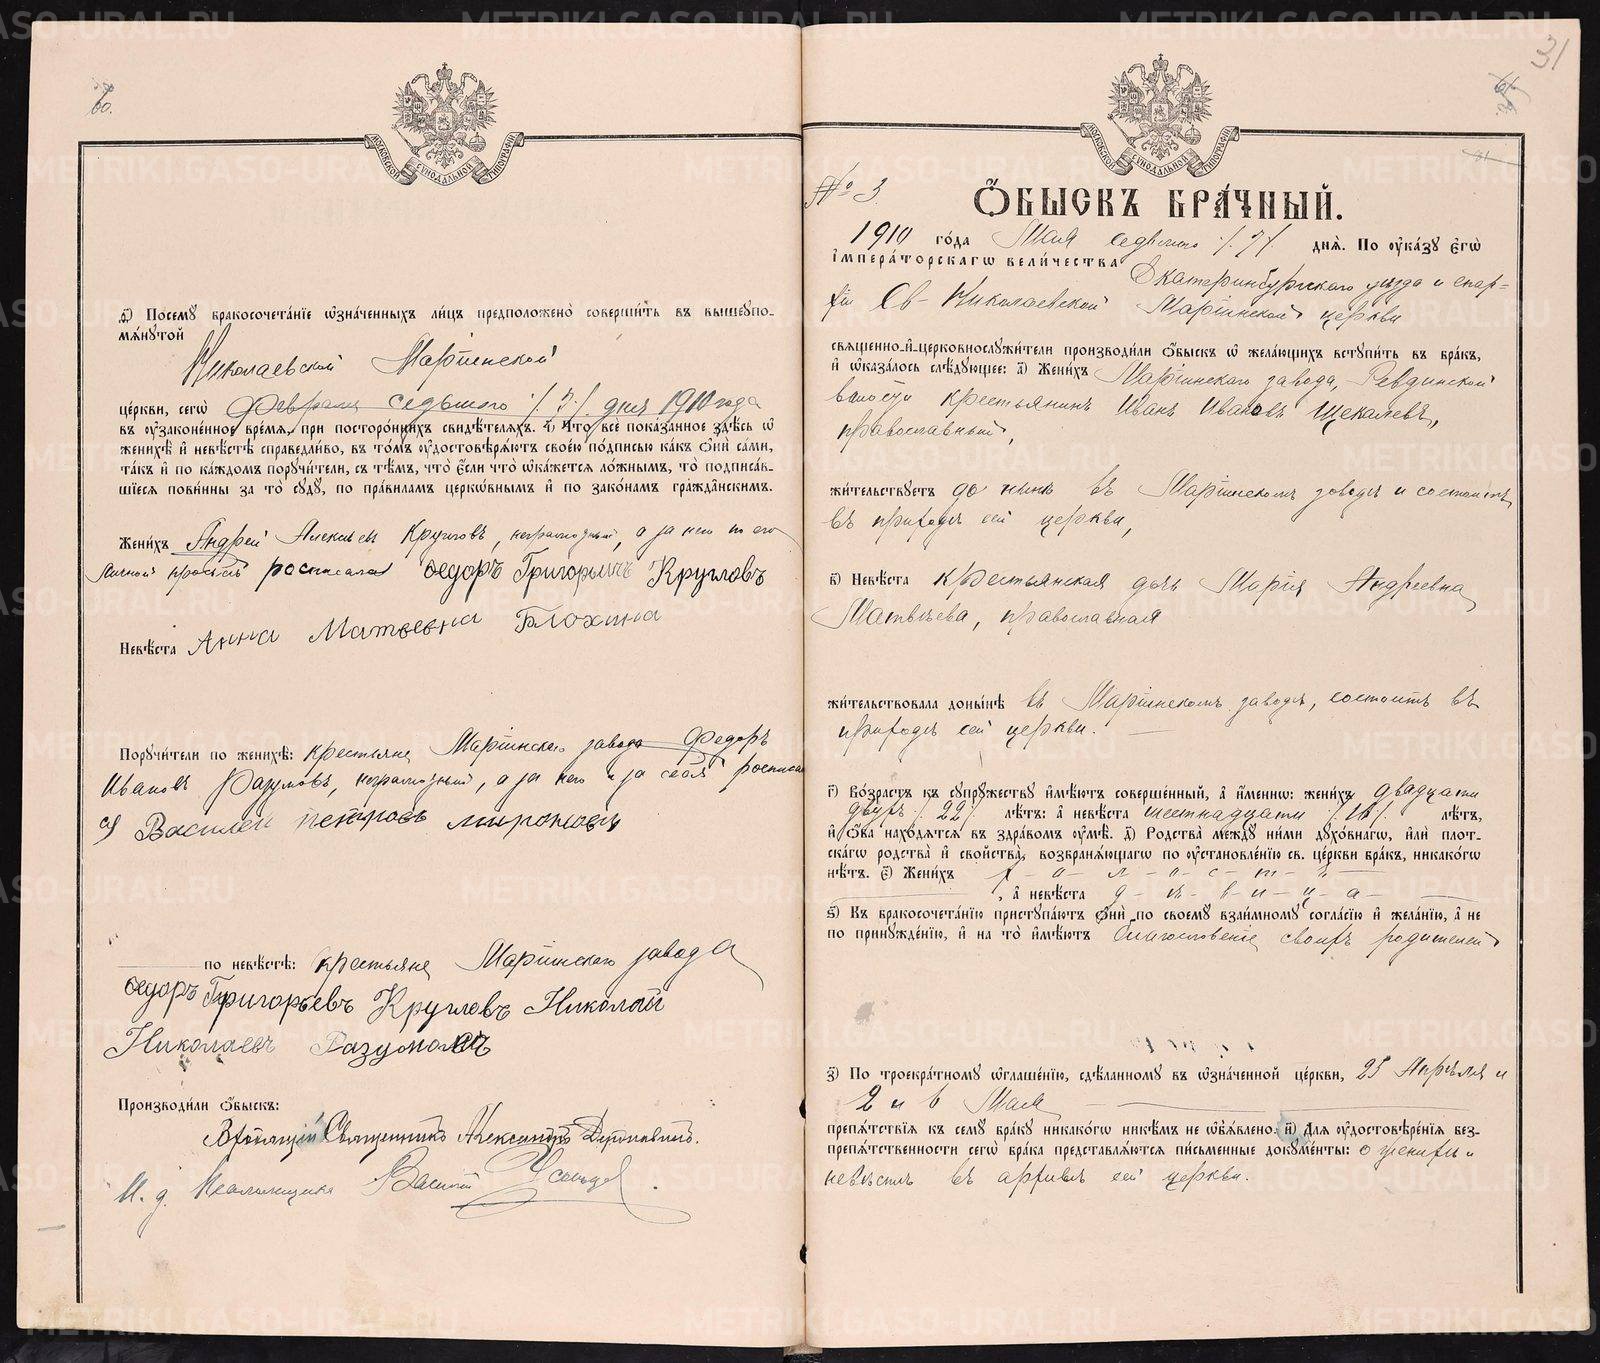 60.
МОСКОВСКОЙ СѴНОДАЛЬНОЙ ТИПОГРАФІИ
ѳ҃) Посемꙋ бракосочета́нїе ѡ҆зна́ченныхъ ли́цъ предположено̀ соверши́ть въ вышеꙋпо-
мѧ́нꙋтой
Николаевской Маріинской
це́ркви, сегѡ̀ февраля седьмого /7/ дня 1910 года
въ ᲂу҆зако́ненное вре́мѧ, при посторо́нихъ свидѣ́телѧхъ. І҃) Что̀ всѐ пока́занное здѣ́сь ѡ҆
женихѣ̀ и҆ невѣ́стѣ справедли́во, въ то́мъ ᲂу҆достовѣрѧ́ютъ свое́ю по́дписью ка́къ ѻ҆нѝ са́ми,
та́къ и҆ по ка́ждомъ порꙋчи́тели, съ тѣ́мъ, что̀ є҆́сли что̀ ѡ҆ка́жетсѧ ло́жнымъ, то̀ подписа́в-
шїесѧ пови́нны за то̀ сꙋдꙋ̀, по пра́виламъ церко́внымъ и҆ по зако́намъ гражда́нскимъ.
Жени́хъ Андрей Алексѣев Кругловъ, неграмотный, а за него по его
личной просьбѣ росписался Ѳедоръ Григорьичъ Кругловъ
Невѣ́ста Анна Матвеевна Блохина
Порꙋчи́тели по женихѣ̀: крестьяне Маріинскаго завода Федоръ
Ивановъ Разумовъ, неграмотный, а за него и за себя росписал
ся Василей петровъ миронов
по невѣ́стѣ: крестьяне Маріинскаго завода
Ѳедоръ Григорьевъ Кругловъ Николай
Николаевъ Разумовъ
Производи́ли ѻ҆́быскъ:
Священникъ Александръ
И. д. Псаломщика Василій
31
МОСКОВСКОЙ СѴНОДАЛЬНОЙ ТИПОГРАФІИ
№ 3.
Ѻ҆́БЫСКЪ БРА́ЧНЫЙ.
1910 го́да Мая седьмого /7/ днѧ̀. По ᲂу҆ка́зꙋ є҆гѡ̀
і҆мпера́торскагѡ вели́чества Екатеринбургскаго уѣзда и епар-
хіи Св- Николаевской Маріинской церкви
свѧще́нно-и҆-церковнослꙋжи́тели производи́ли ѻ҆́быскъ ѡ҆ жела́ющихъ встꙋпи́ть въ бра́къ,
и҆ ѡ҆каза́лось слѣ́дꙋющее: а҃) Жени́хъ Маріинскаго завода, Ревдинской
волости крестьянинъ Иванъ Ивановъ Щекалевъ,
православный,
жи́тельствꙋетъ до нынѣ въ Маріинскомъ заводѣ и состоитъ
въ приходѣ сей церкви,
в҃) Невѣ́ста крестьянская дочь Марія Андреевна
Матвѣева, православная
жи́тельствовала доны́нѣ въ Маріинскомъ заводѣ, состоитъ въ
приходѣ сей церкви.
г҃) Во́зрастъ къ сꙋпрꙋ́жествꙋ и҆мѣ́ютъ соверше́нный, а҆ и҆́менно: жени́хъ двадцати
двухъ /22/ лѣ́тъ: а҆ невѣ́ста шестнадцати /16/ лѣ́тъ,
и҆ ѻ҆́ба нахо́дѧтсѧ въ здра́вомъ ᲂу҆мѣ̀. д҃) Родства̀ междꙋ̀ ни́ми дꙋхо́внагѡ, и҆лѝ пло́т-
скагѡ родства̀ и҆ сво́йства̀, возбранѧ́ющагѡ по ᲂу҆становле́нїю св. це́ркви бра́къ, никако́гѡ
нѣ́тъ. є҃) Жени́хъ х-о-л-о-с-т-ъ
, а҆ невѣ́ста д-ѣ-в-и-ц-а
ѕ҃) Къ бракосочета́нїю пристꙋпа́ютъ ѻ҆нѝ по своемꙋ̀ взаи́мномꙋ согла́сїю и҆ жела́нїю, а҆ не
по принꙋжде́нїю, и҆ на то̀ и҆мѣ́ютъ благословеніе своихъ родителей
з҃) По троекра́тномꙋ ѡ҆глаше́нїю, сдѣ́ланномꙋ въ ѡ҆зна́ченной це́ркви, 25 Апрѣля и
2 и 6 Мая
препѧ́тствїѧ къ семꙋ̀ бра́кꙋ никако́гѡ никѣ́мъ не ѡ҆б̾ѧ́влено. и҃) Длѧ ᲂу҆достовѣре́нїѧ без-
препѧ́тственности сегѡ̀ бра́ка представлѧ́ютсѧ пи́сьменные докꙋме́нты: о женихѣ и
невѣстѣ въ архивѣ сей церкви.
METRIKI.GASO-URAL.RU